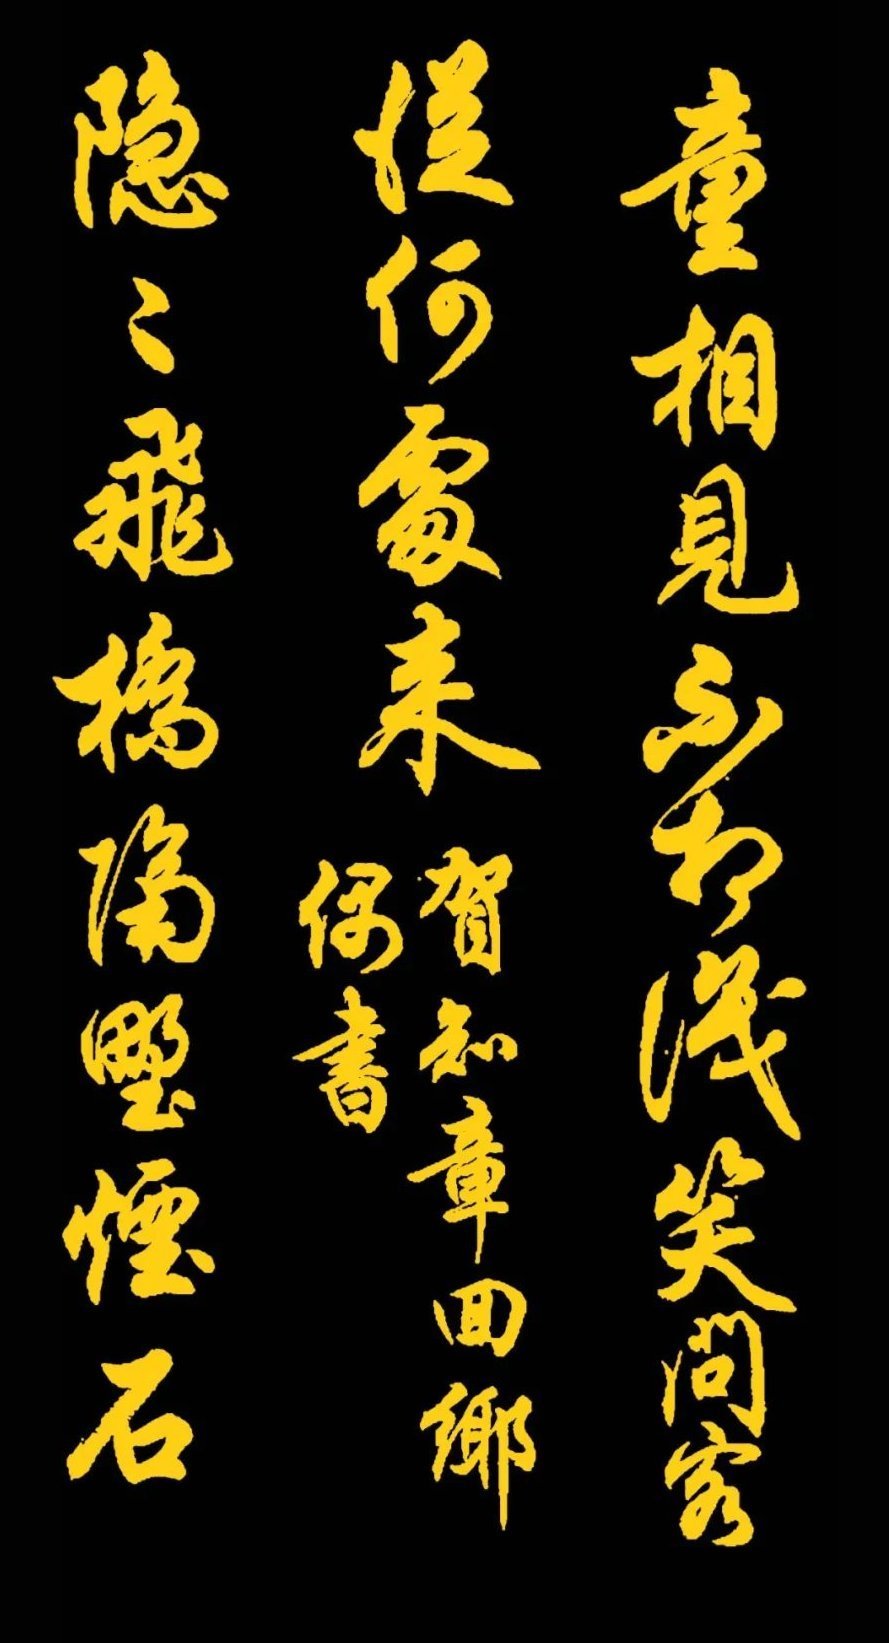 童相見不相識笑問客
從何處来
賀知章回鄉
偶書
隱〻飛橋隔野煙石